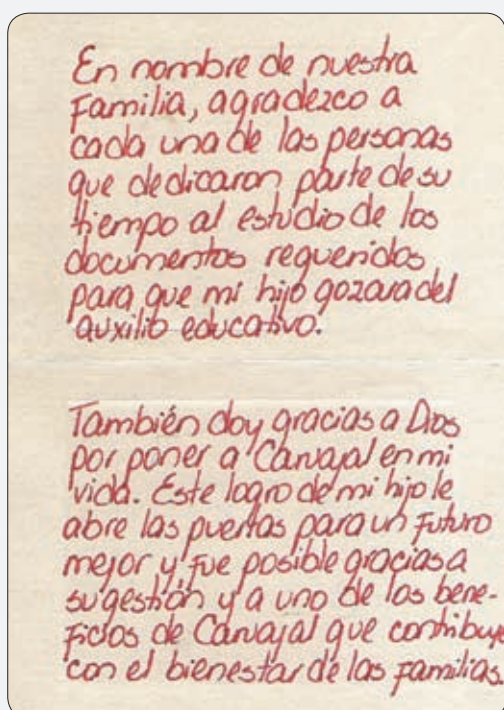 En nombre de nuestra
Familia, agradezco a
cada una de las personas
que dedicaron parte de su
tiempo al estudio de los
documentos requeridos
para que mi hijo gozara del
auxilio educativo.
También doy gracias a Dios
por poner a Carvajal en mi
vida. Este logro de mi hijo le
abre las puertas para un futuro
mejor y fue posible gracias a
su gestión y a uno de los bene-
ficios de Carvajal que contribuye
con el bienestar de las familias.